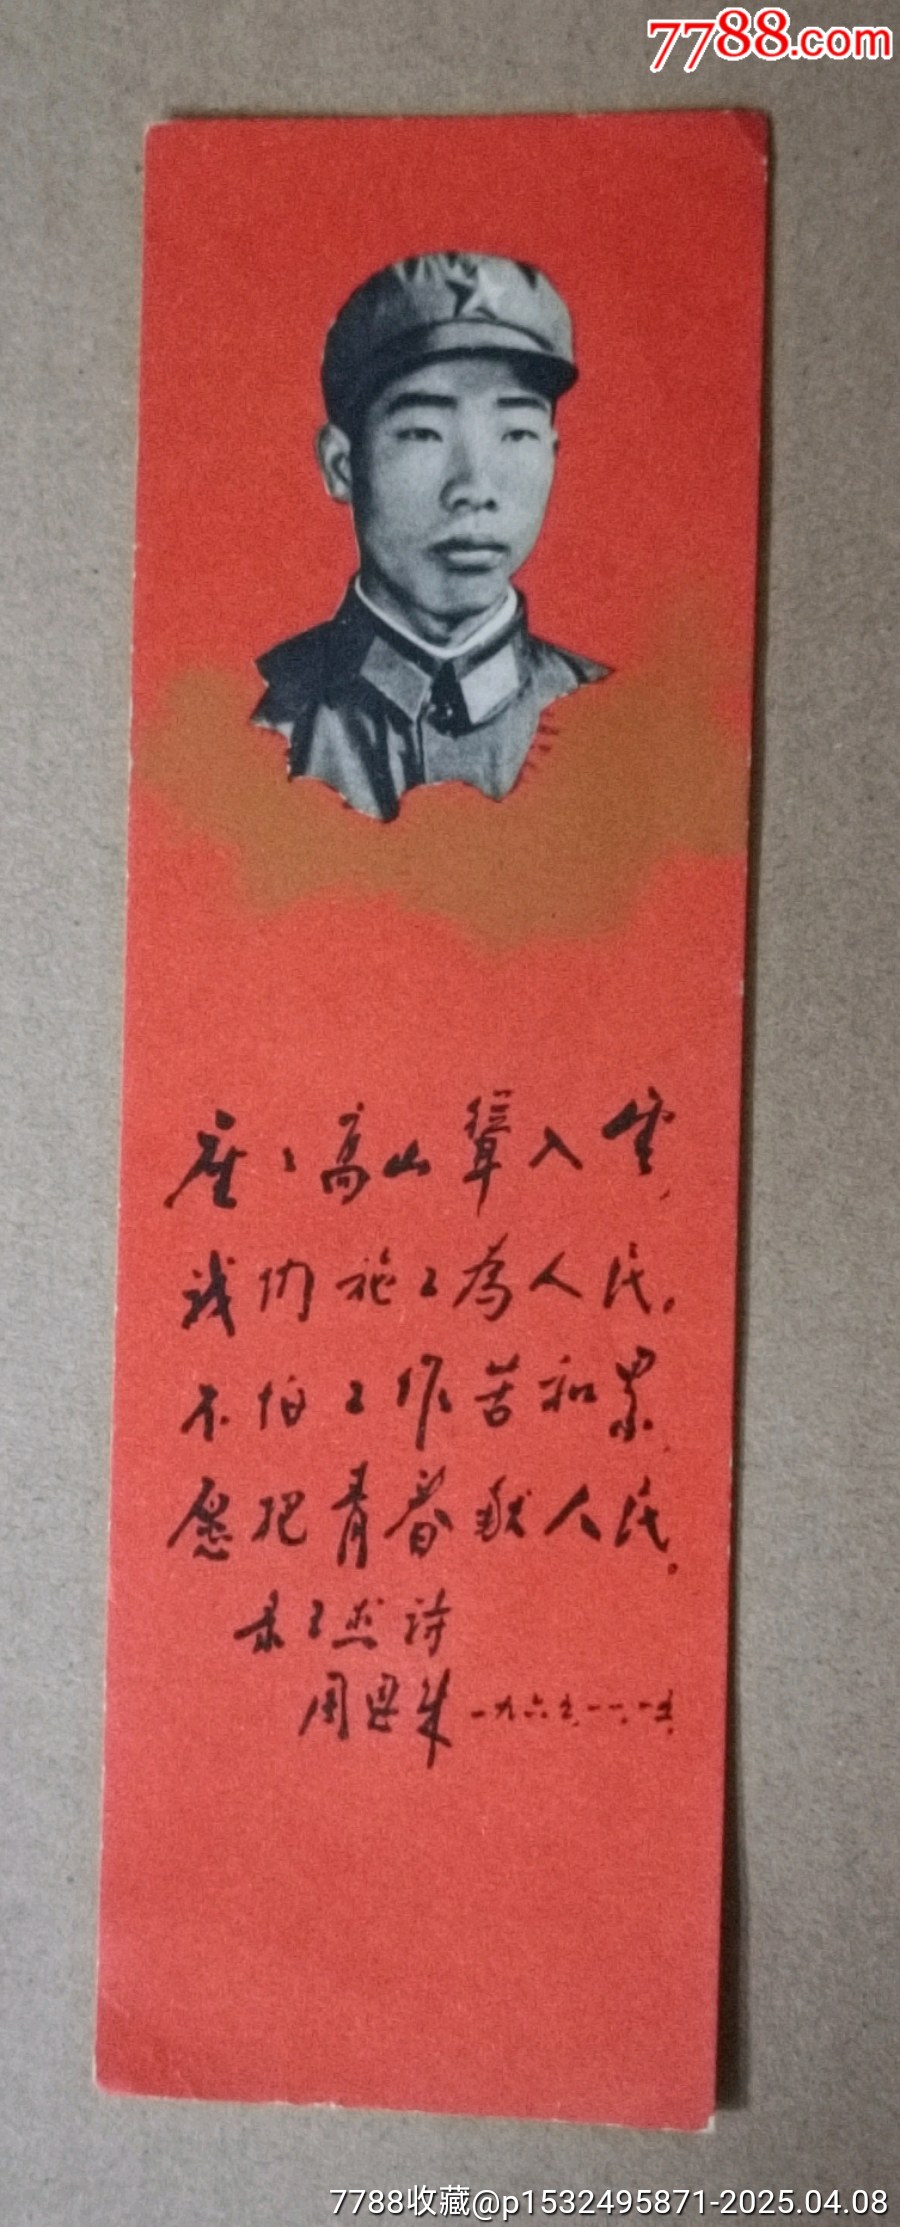 7788.com
座、高山耸入雲，
我们施工為人民。
不怕工作苦和累，
愿把青春献人民。
录王杰诗
周恩来 一九六五.一一.一五.
7788收藏@p1532495871-2025.04.08